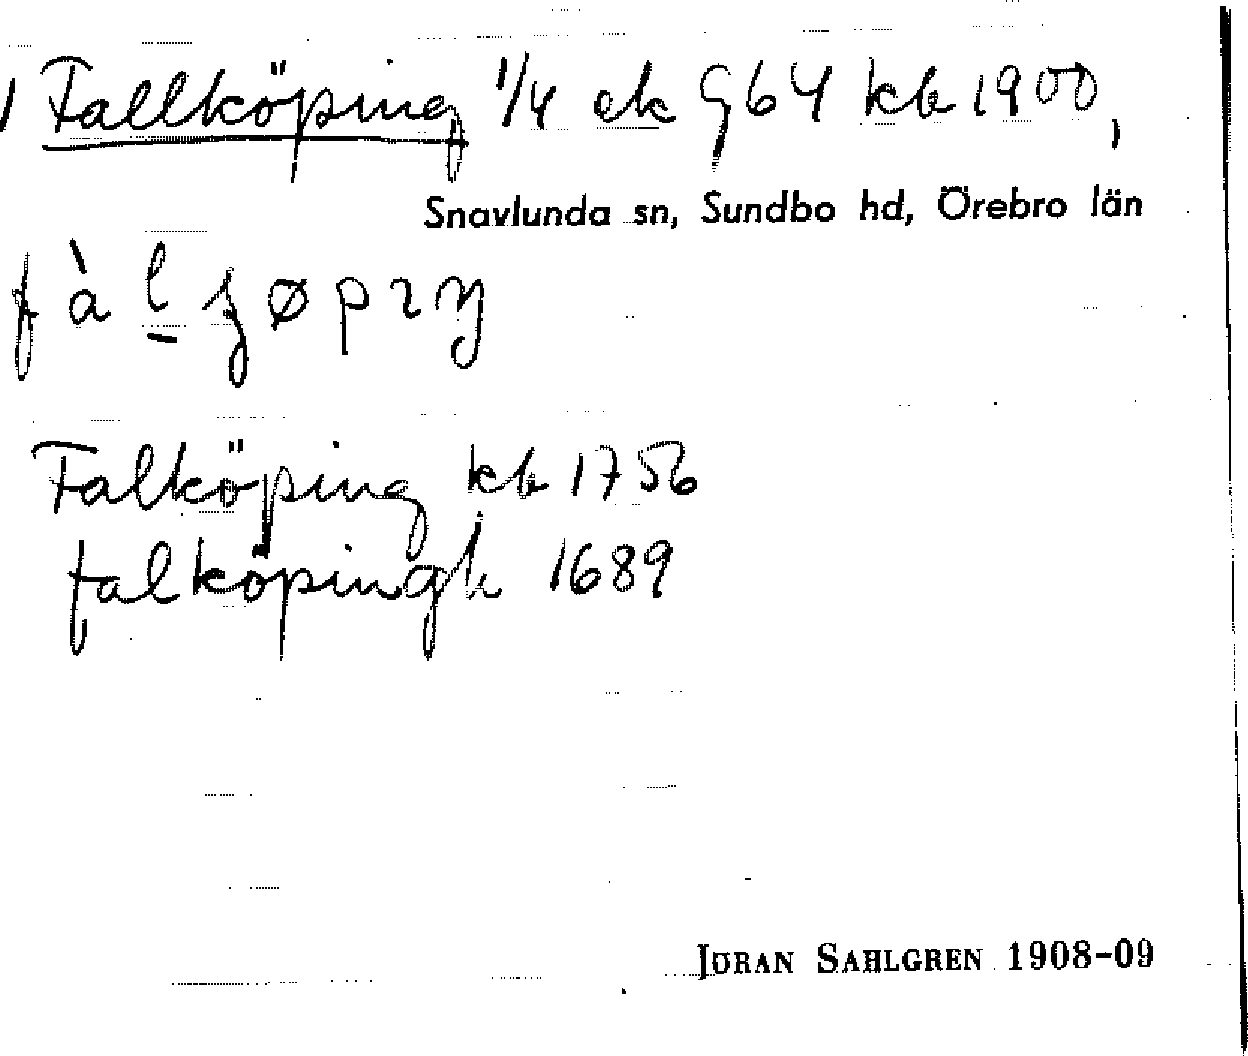 Fallköping 1/4 ek G64 kb 1900,
Snavlunda sn, Sundbo hd, Örebro län
Falköping kb 1756
falköpingh 1689
JÖRAN SAHLGREN 1908-09